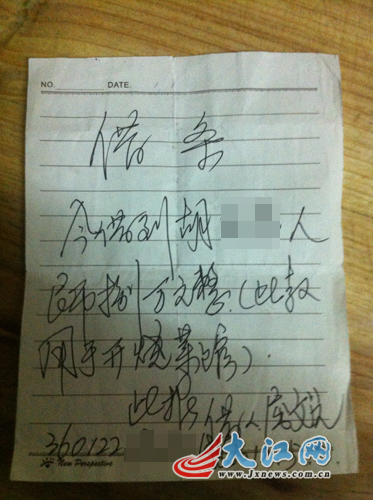 NO. DATE.
借条
今借到胡 人
民币捌万元整.(此款
用于开烧菜馆).
此据 借人
360122
New Perspective
大江网
www.jxnews.com.cn